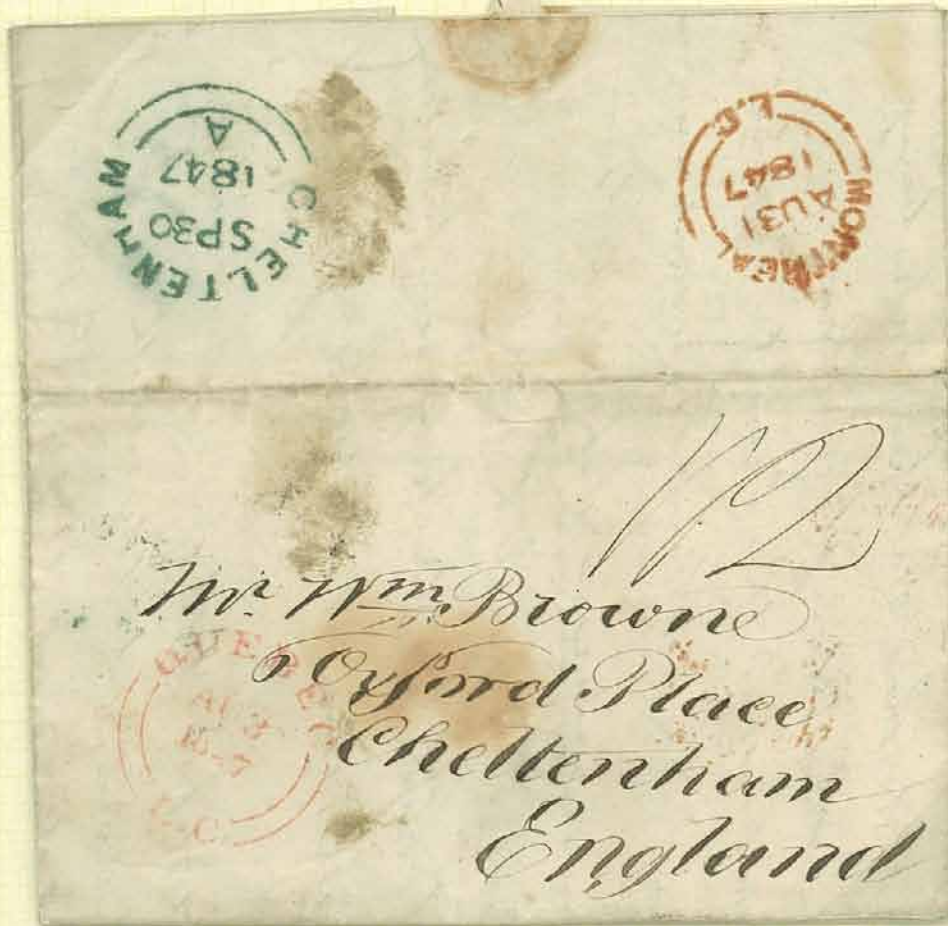 CHELTENHAM
SP30
1847
A
MONTREAL
AU31
1847
L.C
1/2
Mr. Wm. Browne
Oxford Place
Cheltenham
England
QUEBEC
AU
L.C